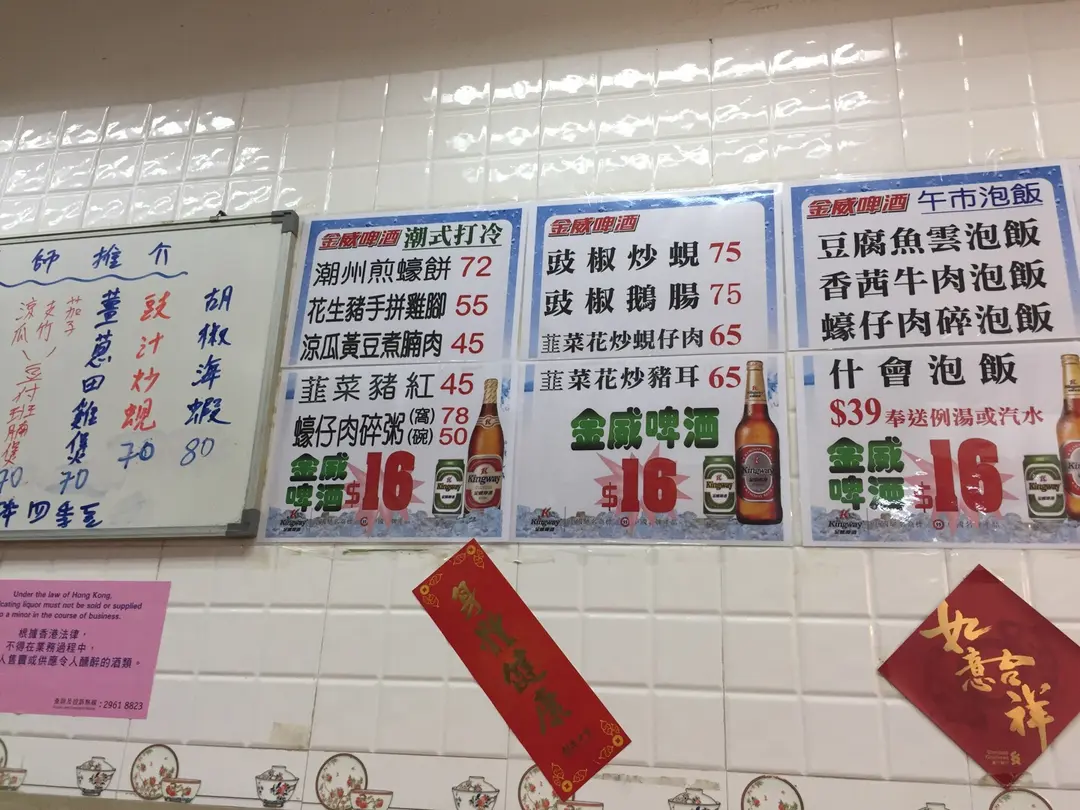 師推介
胡椒海蝦 80
豉汁炒蜆 70
薑蔥田雞煲 70
茄子
涼瓜
金威啤酒 潮式打冷
潮州煎蠔餅 72
花生豬手拼雞腳 55
涼瓜黃豆煮腩肉 45
韮菜豬紅 45
蠔仔肉碎粥 (窩) 78
(碗) 50
金威啤酒 $16
Kingway
金威啤酒
豉椒炒蜆 75
豉椒鵝腸 75
韮菜花炒蜆仔肉 65
韮菜花炒豬耳 65
金威啤酒
$16
Kingway
金威啤酒 午市泡飯
豆腐魚雲泡飯
香茜牛肉泡飯
蠔仔肉碎泡飯
什會泡飯
$39奉送例湯或汽水
金威啤酒 $16
Kingway
Under the law of Hong Kong,
cating liquor must not be sold or supplied
o a minor in the course of business.
根據香港法律，
不得在業務過程中，
人售賣或供應令人醺醉的酒類。
2961 8823
身體健康
如意吉祥